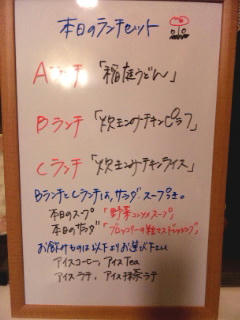 本日のランチセット
Aランチ「稲庭うどん」
Bランチ「炊エンのチキンピラフ」
Cランチ「炊エンのチキンライス」
BランチとCランチは、サラダ スープつき。
本日のスープ「野菜コンソメスープ」
本日のサラダ「ブロッコリーの粒マスタードドレッシング」
お飲みものは以下よりお選び下さい
アイスコーヒー、アイスTea
アイスラテ、アイス抹茶ラテ